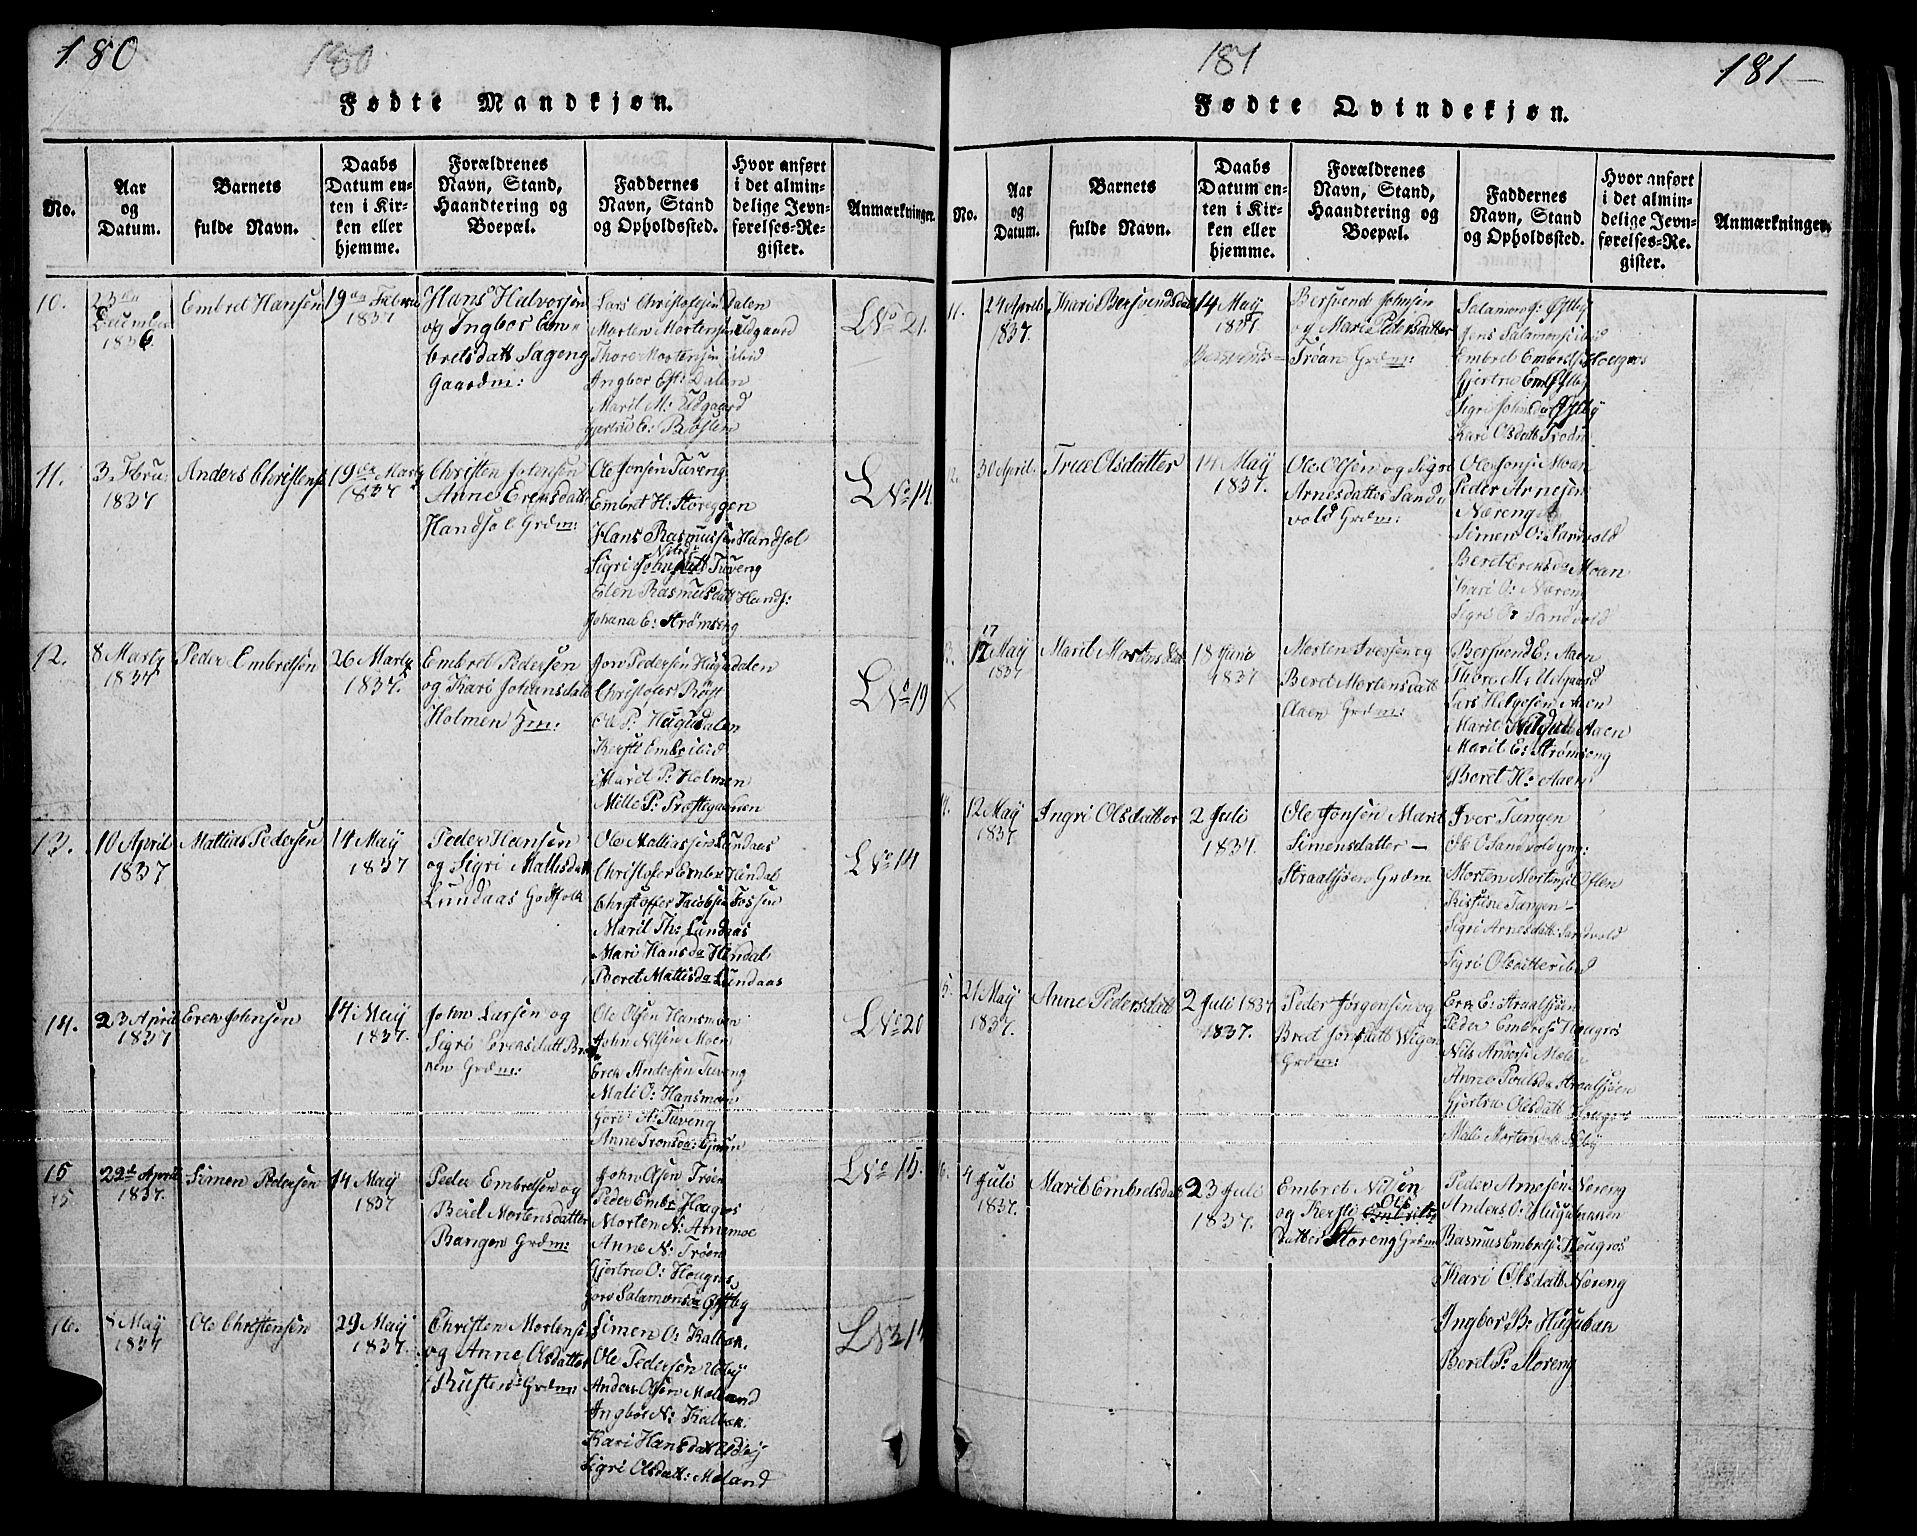 180
180
Fødte Mandkjøn.
No.
Aar
og
Datum.
Barnets
fulde Navn.
Daabs
Datum en-
ten i Kir-
ken eller
hjemme.
Forældrenes
Navn, Stand,
Haandtering og
Boepæl.
Faddernes
Navn, Stand
og Opholdssted.
Hvor anført
i det almin-
delige Jevn-
førelses-Re-
gister.
Anmærkninger.
10.
December
1836
Embret Hansen
1837
Hans Halvorsen
og Ingbor Em-
bretsdatt Sageng
Gaardm:
Lars Christophersen Dalen
Morten Mortensen Udgaard
Thore Mortensen ibid
Dalen
Marit M: Udgaard
LNo 21.
11.
3 Febru
1837
Anders Christens
19de Marty
1837
Christen Johnsen
Anne Erensdatt
Handsöl Grdm:
Ole Jonsen Tuveng
Embret H: Storeggen
Hans Rasmussen Handsøl
Tuveng
Elen Rasmusdatt Hands:
Johana E: Strømseng
LNo 14.
12.
8 Marty
1837
Peder Embretsen
26 Marty
1837.
Embret Pedersen
og Kari Johansdatt
Holmen Hm:
Jon Pedersen Hugudalen
Christofer Röst
Ole P: Hugudalen
Kersti Embr: ibid
Marit P: Holmen
Mille P: Præstegaarden
LNo 19
13.
10 April
1837
Mattias Pedersen
14 May
1837
Peder Hansen
og Sigri Mattisdatt
Lundaas
Ole Mattiassen Lundaas
Christofer Embr Hindal
Christoffer Jacobsen Fossen
Marit Th: Lundaas
Mari Hansda Hindal
Beret Mattisda Lundaas
LNo 14
14.
23 April
1837
Eren Johnsen
14 May
1837.
John Larsen og
Sigri Erensdatt
Grdm:
Ole Olsen Hansmoen
John Nilsen Moen
Eren Andersen Tuveng
Mali O: Hansmoen
Goro A: Tuveng
Anne Tronsda:
LNo 20
15
15
22de April
1837.
Simen Pedersen
14 May
1837
Peder Embretsen og
Beret Mortensdatter
Bangen Grdm:
John Olsen Trøen
Peder Embr Hougros
Morten N: Aunemoe
Anne N: Trøen
Gjertru O: Hougros
Goro Salamonsda Østby
LNo 15.
16.
8 May
1837
Ole Christensen
29 May
1837.
Christen Mortens
og Anne Olsdatter
Rusten Grdm
Simen O: Kalbæk.
Ole Pedersen Udby
Anders Olsen Moeland
Ingbor N: Kalbæk.
Kari Hansdatt Udby
Sigri Olsdatt: Moland
LNo 14
181
181
Fødte Qvindekjøn.
No.
Aar
og
Datum.
Barnets
fulde Navn.
Daabs
Datum en-
ten i Kir-
ken eller
hjemme.
Forældrenes
Navn, Stand,
Haandtering og
Boepæl.
Faddernes
Navn, Stand
og Opholdssted.
Hvor anført
i det almin-
delige Jevn-
førelses-Re-
gister.
Anmærkninger.
11.
24 April
1837.
Kari Bersvendsdatt
14 May
1837.
Bersvend Johnsen
og Marit Pedersdatter
Trøan Grdm:
Østby
Jens Salamonsen ibid
Embret Embrets Hougros
Gjertru Emb Østby
Sigri Johnsda Østby
Kari Olsdatt
2.
30 April
True Olsdatter
14 May
1837.
Ole Olsen og Sigri
Arnesdatter Sand
vold Grdm:
Ole Jonsen Moan
Peder Arnesen
Næreng
Simen O: Sandvold
Beret Erensda Moan
Kari O: Næreng
Sigri O: Sandvold
3.
17
May
1837
Marit Mortensdatt
18 Juni
1837
Morten Iversen og
Beret Mortensdatt
Aaen Grdm:
Bersvend E: Aaen
Thore M: Udgaard
Lars Helgesen Aaen
Marit Aaen
Marit E: Strømseng
Beret H: Aaen
4.
12 May
1837
Ingri Olsdatter
2 Juli
1837.
Ole Jonsen Marit
Simensdatter —
Straalsjøen Grdm
Iver Tangen
Ole O Sandvold yng:
Morten Mortens Østen
Kristine Tangen —
Sigri Arnesdatt Sandvold
Sigri Olsdatter ibid
5.
21 May
1837.
Anne Pedersdatt
2 Juli 1837
1837.
Peder Jörgensen og
Beret Jonsdatt Wigen
Grdm:
Eren E: Straalsjøen
Peder Embrets Hougros
Nils Anders Moen
Anne Poulsda Straalsjøen
Gjertru Olsdatt Hougros
6.
4 Juli
1837.
Marit Embretsdatt
23 Juli
1837.
Embret Nilsen
og Kersti Ols
datter Storeng Grdm
Peder Arnesen Næreng
Anders O: Hugubakken
Rasmus Embrets Hougros
Kari Olsdatt Næreng
Ingbor B: Hugubak
Beret P: Storeng